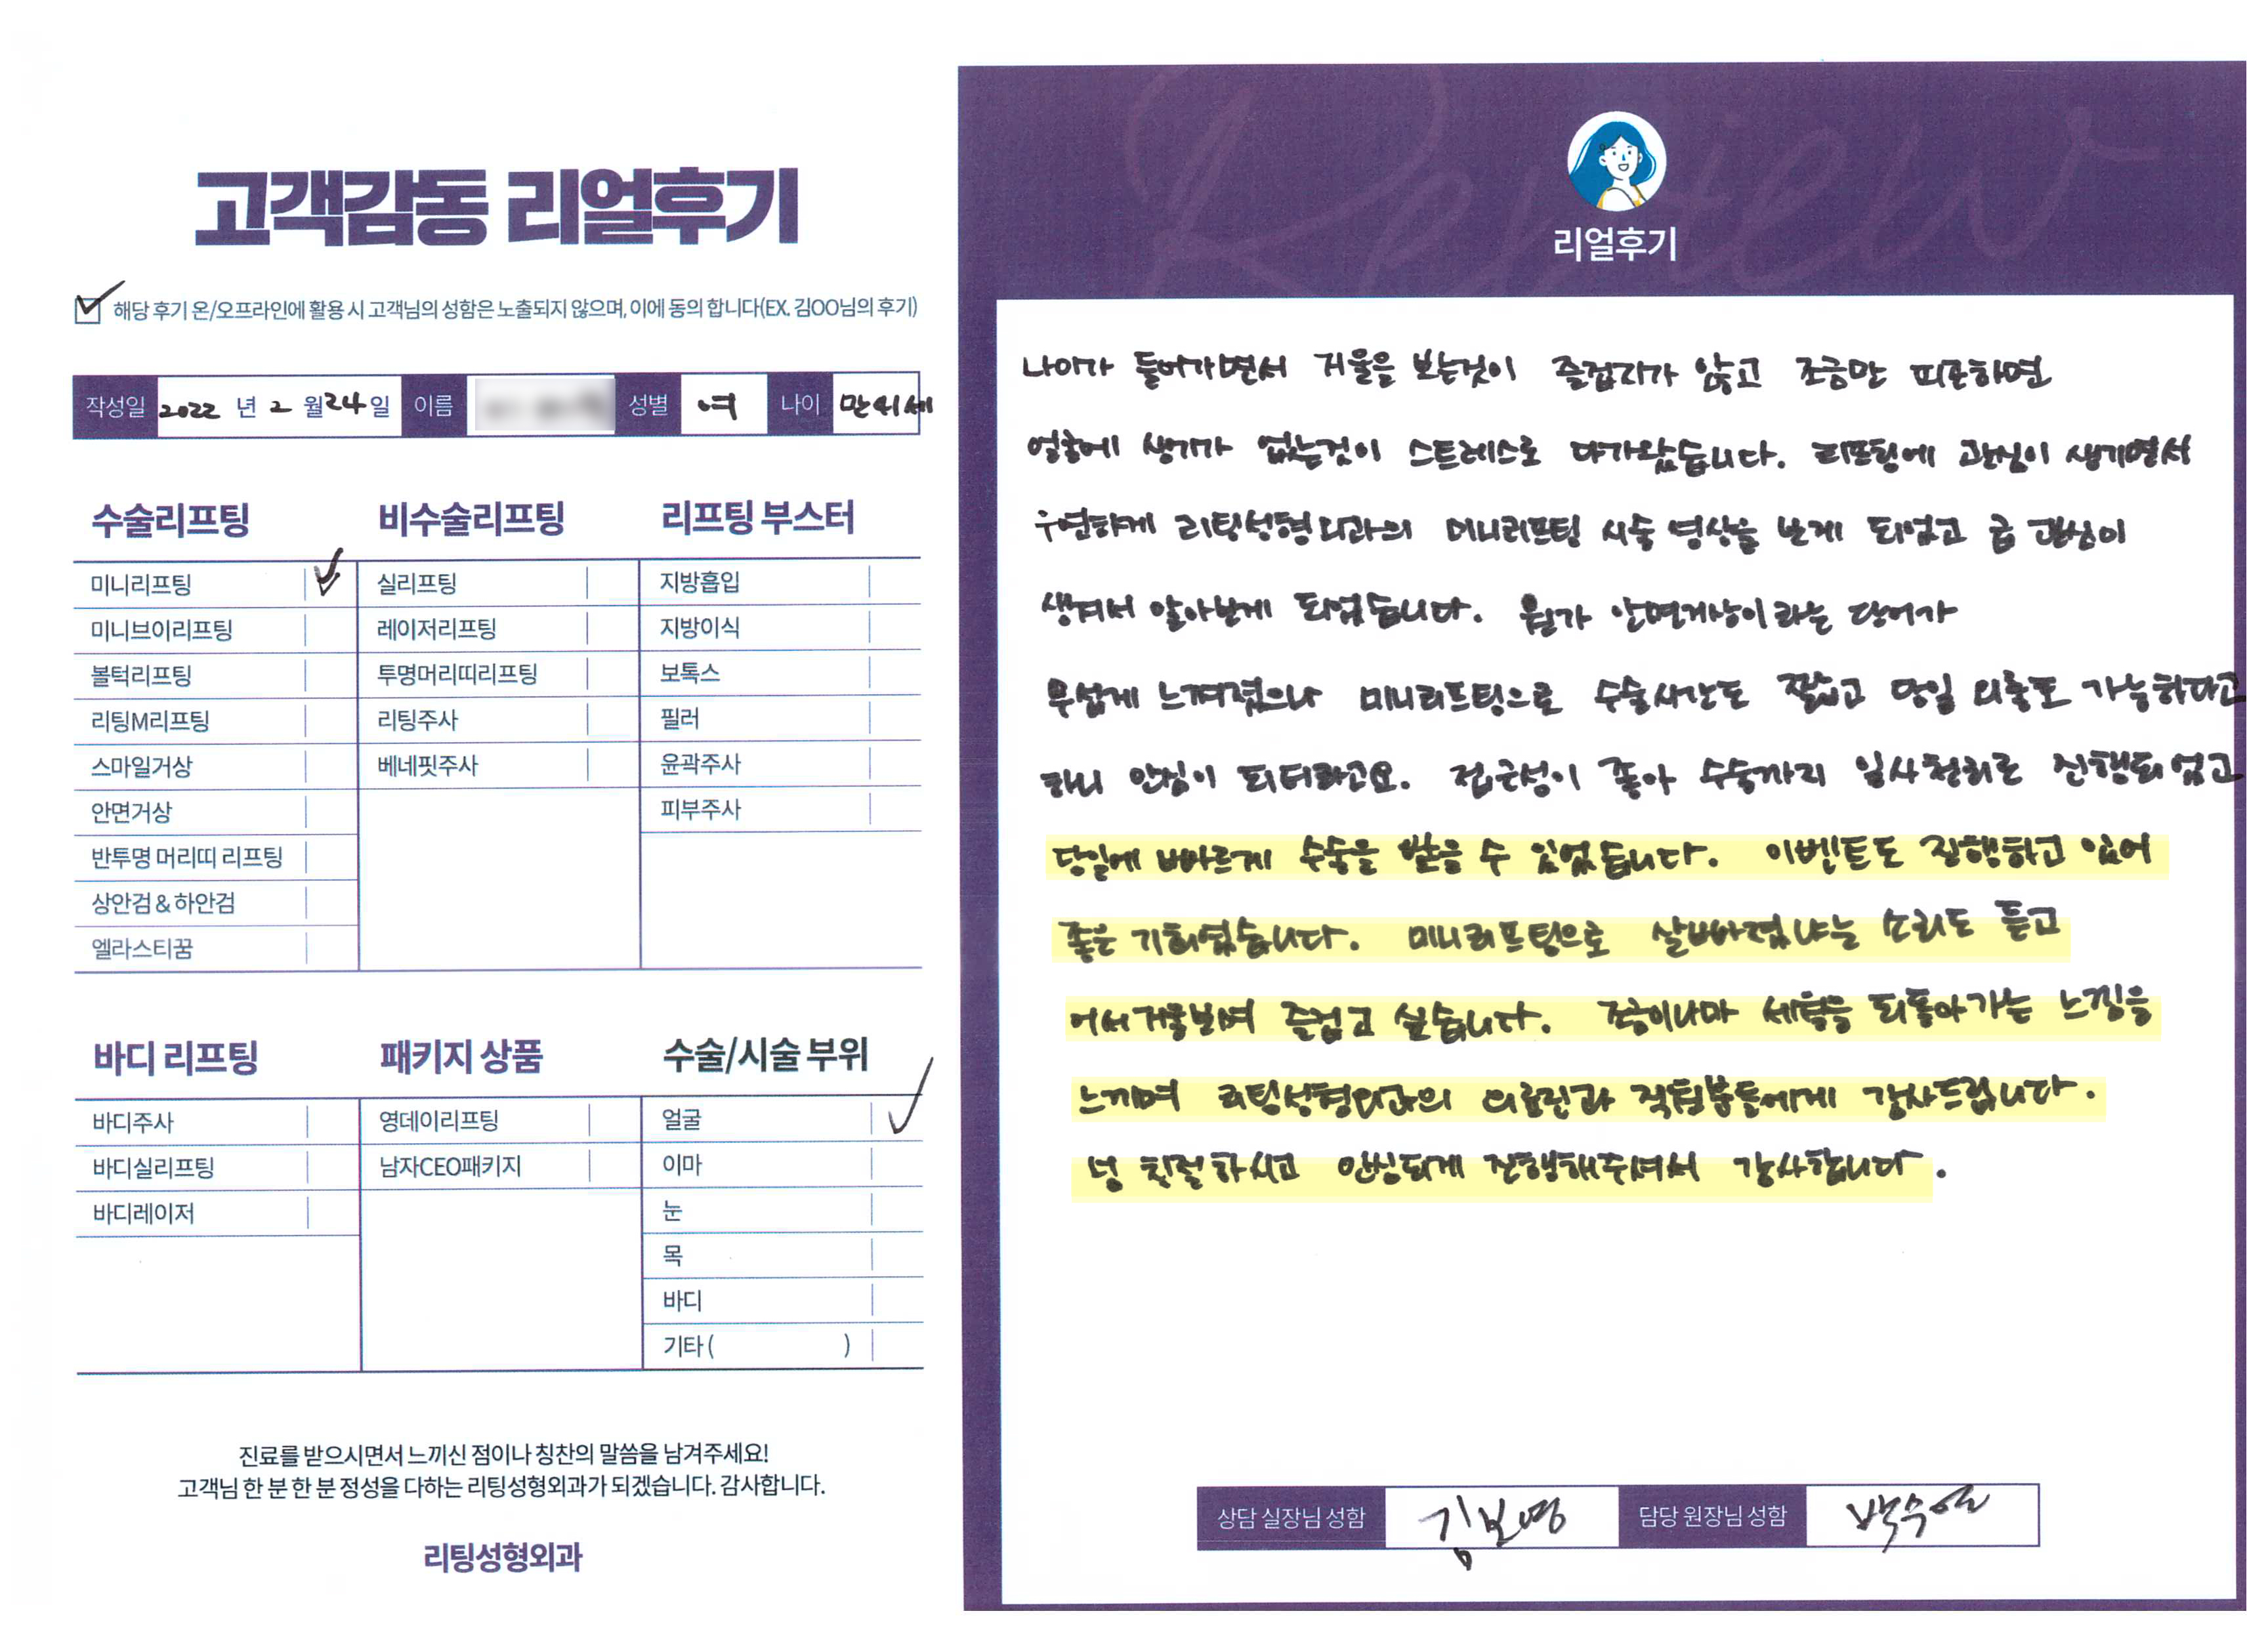 고객감동 리얼후기
해당 후기 온/오프라인에 활용 시 고객님의 성함은 노출되지 않으며, 이에 동의 합니다(EX. 김OO님의 후기)
작성일 2022 년 2 월 24 일 이름 성별 여 나이 만41세
수술리프팅 비수술리프팅 리프팅 부스터
미니리프팅 실리프팅 지방흡입
미니브이리프팅 레이저리프팅 지방이식
볼턱리프팅 투명머리띠리프팅 보톡스
리팅M리프팅 리팅주사 필러
스마일거상 베네핏주사 윤곽주사
안면거상 피부주사
반투명 머리띠 리프팅
상안검 & 하안검
엘라스티꿈
바디 리프팅 패키지 상품 수술/시술 부위
바디주사 영데이리프팅 얼굴
바디실리프팅 남자CEO패키지 이마
바디레이저 눈
목
바디
기타 ( )
진료를 받으시면서 느끼신 점이나 칭찬의 말씀을 남겨주세요!
고객님 한 분 한 분 정성을 다하는 리팅성형외과가 되겠습니다. 감사합니다.
리팅성형외과
Review
리얼후기
나이가 들어가면서 거울을 보는것이 즐겁지가 않고 조금만 피곤하면
얼굴에 생기가 없는것이 스트레스로 다가왔습니다. 리프팅에 관심이 생기면서
우연하게 리팅성형외과의 미니리프팅 시술 영상을 보게 되었고 급 관심이
생겨서 알아보게 되었습니다. 뭔가 안면거상이라는 단어가
무섭게 느껴졌으나 미니리프팅으로 수술시간도 짧고 당일 외출도 가능하다고
하니 안심이 되더라고요. 접근성이 좋아 수술까지 일사천리로 진행되었고
당일에 빠르게 수술을 받을 수 있었습니다. 이벤트도 진행하고 있어
좋은 기회였습니다. 미니리프팅으로 살빠졌냐는 소리도 듣고
어서 거울보며 즐겁고 싶습니다. 조금이나마 세월을 되돌아가는 느낌을
느끼며 리팅성형외과의 의료진과 직원분들에게 감사드립니다.
넘 친절하시고 안심되게 진행해주셔서 감사합니다.
상담 실장님 성함 김보영 담당 원장님 성함